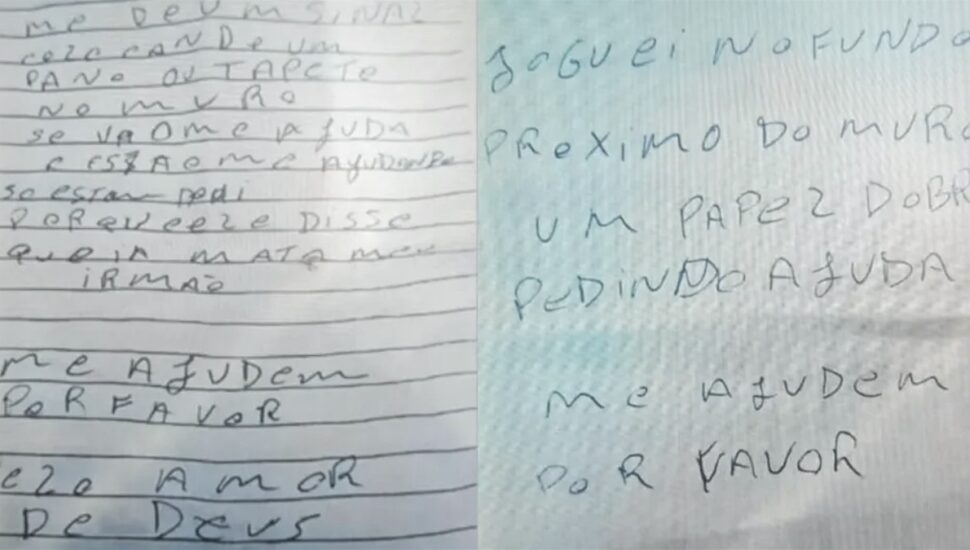 ME DEUM SiNAL
COLOCANDO UM
PANO OU TAPETE
NO MURO
SE VÃO ME AJUDA
E ESTÃO ME AJUDANDO
SO ESTAM
PORQUE ELE DISSE
QUE IA MATA MEU
iRMÃO
ME AJUDEM
POR FAVOR
ELO AMOR
DE DEUS
JOGUEi NO FUNDO
PROXiMO DO MURO
UM PAPEL DOBR
PEDiNDO AJUDA
ME AJUDEM
POR FAVOR